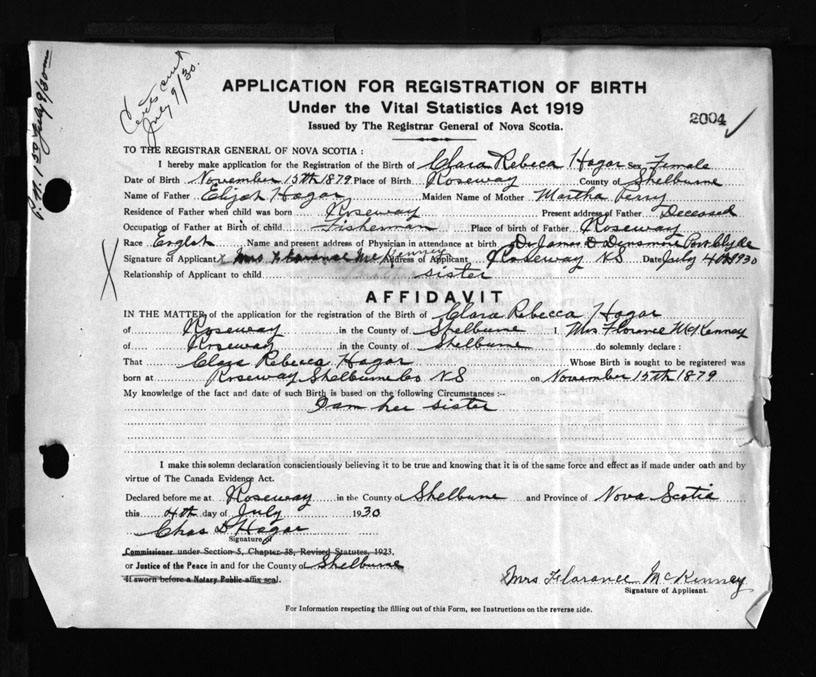 Certs sent
July 9/30.
APPLICATION FOR REGISTRATION OF BIRTH
Under the Vital Statistics Act 1919
Issued by The Registrar General of Nova Scotia.
2004 ✓
TO THE REGISTRAR GENERAL OF NOVA SCOTIA :
I hereby make application for the Registration of the Birth of Clara Rebeca Hagar Sex Female
Date of Birth November 15th 1879 Place of Birth Roseway County of Shelburne
Name of Father Elijah Hagar Maiden Name of Mother Martha Perry
Residence of Father when child was born Roseway Present address of Father Deceased
Occupation of Father at Birth of child Fisherman Place of birth of Father Roseway
Race English Name and present address of Physician in attendance at birth Dr James D Densmore Port Clyde
Signature of Applicant x Mrs Florance McKenney Address of Applicant Roseway NS Date July 4th 1930
Relationship of Applicant to child sister
AFFIDAVIT
IN THE MATTER of the application for the registration of the Birth of Clara Rebecca Hagar
of Roseway in the County of Shelburne I, Mrs Florance McKenney
of Roseway in the County of Shelburne do solemnly declare :
That Clara Rebecca Hagar Whose Birth is sought to be registered was
born at Roseway Shelburne Co NS on November 15th 1879
My knowledge of the fact and date of such Birth is based on the following Circumstances :-
I am her sister
I make this solemn declaration conscientiously believing it to be true and knowing that it is of the same force and effect as if made under oath and by
virtue of The Canada Evidence Act.
Declared before me at Roseway in the County of Shelburne and Province of Nova Scotia
this 4th day of July 1930
Chas D Hagar
Signature of
Commissioner under Section 5, Chapter 38, Revised Statutes, 1923,
or Justice of the Peace in and for the County of Shelburne
If sworn before a Notary Public affix seal.
Mrs Florance McKenney
Signature of Applicant.
For Information respecting the filling out of this Form, see Instructions on the reverse side.